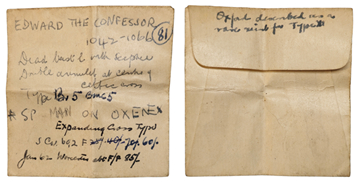 EDWARD THE CONFESSOR
1042-1066 81
Dead bust l. with sceptre
Double annulet at centre of
cross
Type B.5
*SP MAN ON OXENEX
Expanding Cross Type
S Cat 692 F 60/-
Jan 62 F/F 95/-
described as a
rare mint for Type